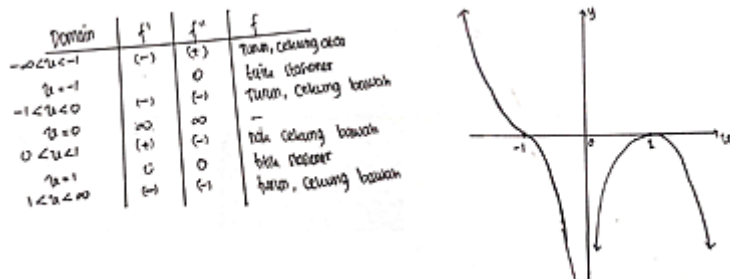 Domain f' f" f
-∞<x<-1 (-) (+) turun, cekung atas
x=-1 0 titik stasioner
-1<x<0 (-) (-) turun, cekung bawah
x=0 ∞ ∞ -
0<x<1 (+) (-) naik cekung bawah
x=1 0 0 titik stasioner
1<x<∞ (-) (-) turun, cekung bawah
y
-1 0 1 x